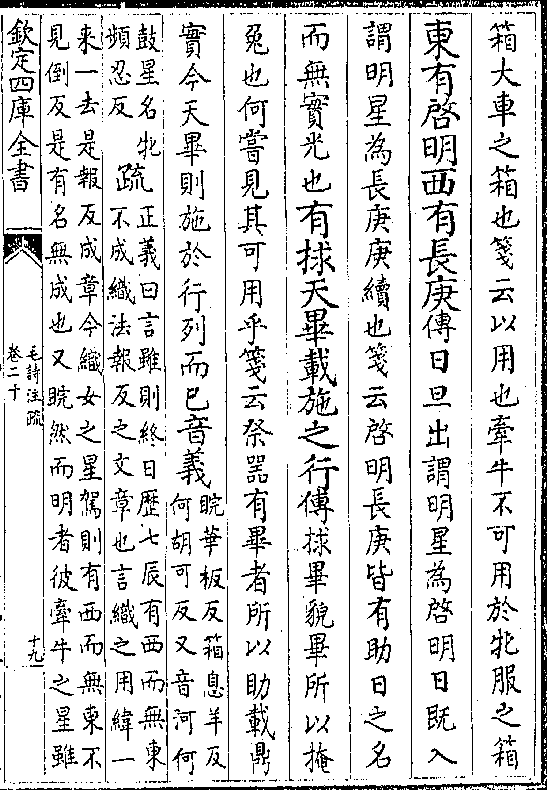 箱大車之箱也箋云以用也牽牛不可用於牝服之箱
東有啓明西有長庚傳日旦出謂明星為啓明日既入
謂明星為長庚庚續也箋云啓明長庚皆有助日之名
而無實光也有捄天畢載施之行傳捄畢貌畢所以掩
兔也何嘗見其可用乎箋云祭器有畢者所以助載鼎
實今天畢則施於行列而已音義
睆華板反箱息羊反
何胡可反又音河何
鼓星名牝
頻忍反
疏
正義曰言雖則終日歴七辰有西而無東
不成織法報反之文章也言織之用緯一
来一去是報反成章今織女之星駕則有西而無東不
見倒反是有名無成也又睆然而明者彼牽牛之星雖
欽定四庫全書
毛詩注疏
卷二十
十九